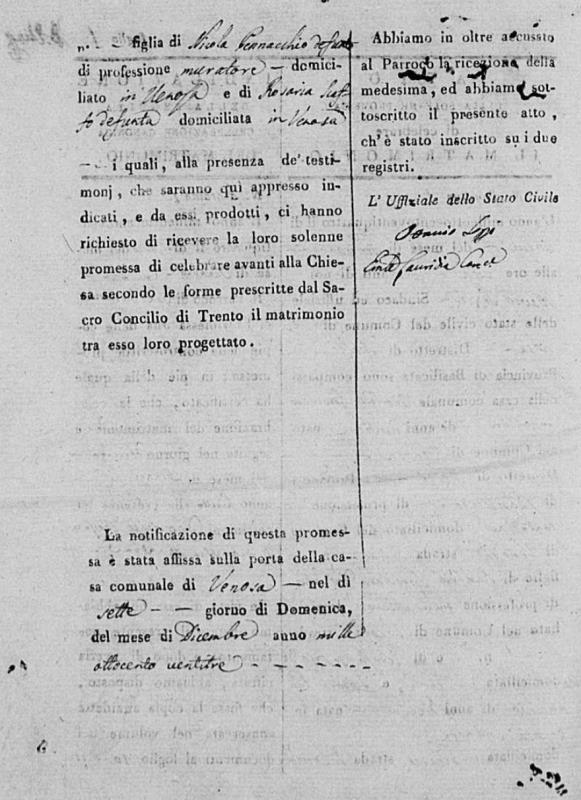 figlia di Nicola Pennacchio defunto
di professione muratore — domici-
liato in Venosa e di Rosaria
defunta domiciliata in Venosa
— i quali, alla presenza de' testi-
monj, che saranno quì appresso in-
dicati, e da essi prodotti, ci hanno
richiesto di ricevere la loro solenne
promessa di celebrare avanti alla Chie-
sa secondo le forme prescritte dal Sa-
cro Concilio di Trento il matrimonio
tra esso loro progettato.
La notificazione di questa promes-
sa è stata affissa sulla porta della ca-
sa comunale di Venosa — nel dì
sette — — giorno di Domenica,
del mese di Dicembre anno mille
ottocento ventitre
Abbiamo in oltre accusato
al Parroco la ricezione della
medesima, ed abbiamo sot-
toscritto il presente atto,
ch'è stato inscritto su i due
registri.
L' Uffiziale dello Stato Civile